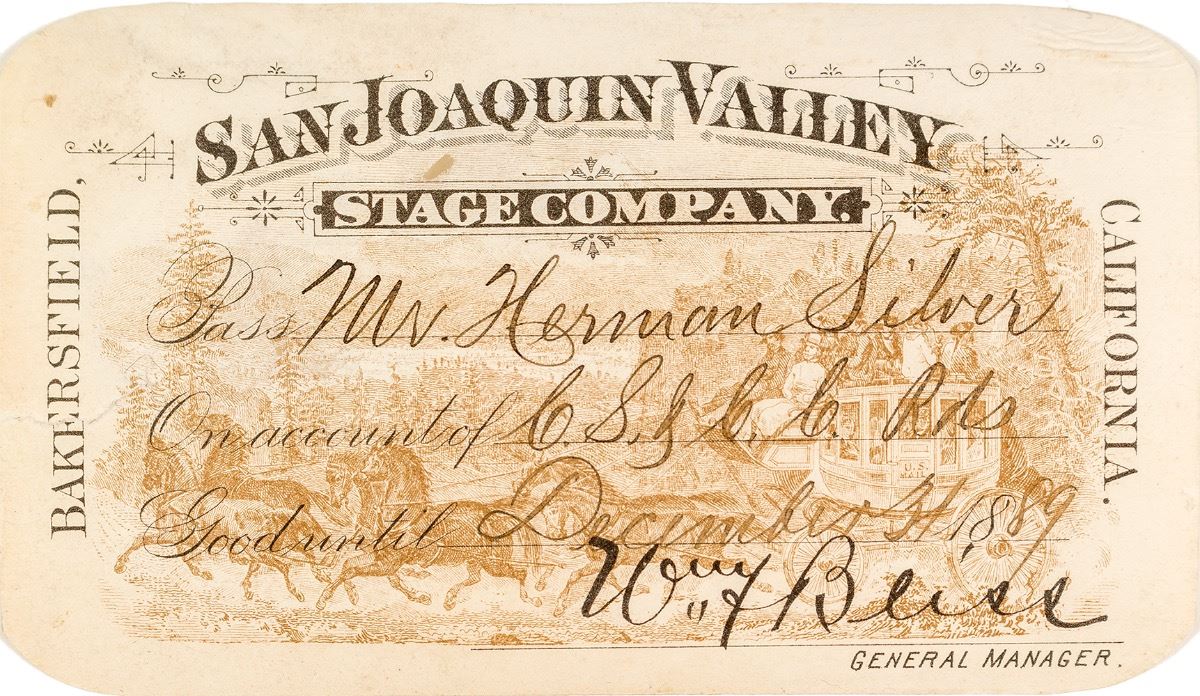 SAN JOAQUIN VALLEY
STAGE COMPANY.
BAKERSFIELD,
CALIFORNIA.
Pass Mr. Herman Silver
On account of C. S. & C. C. Rds
Good until December 31 1889
U.S. MAIL
Wm Beiss
GENERAL MANAGER.